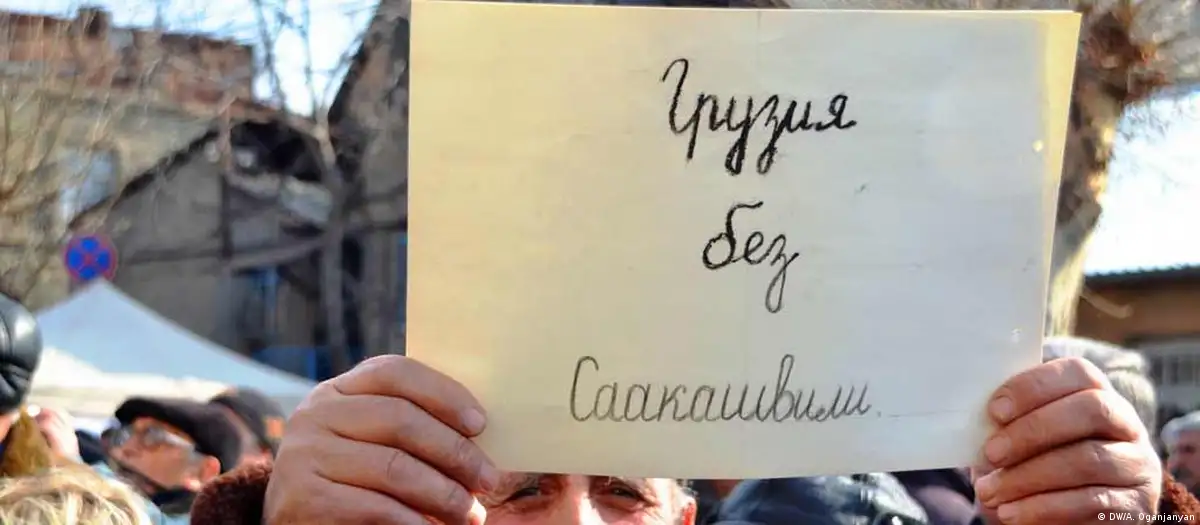 Грузия
без
Саакашвили.
© DW/A. Oganjanyan